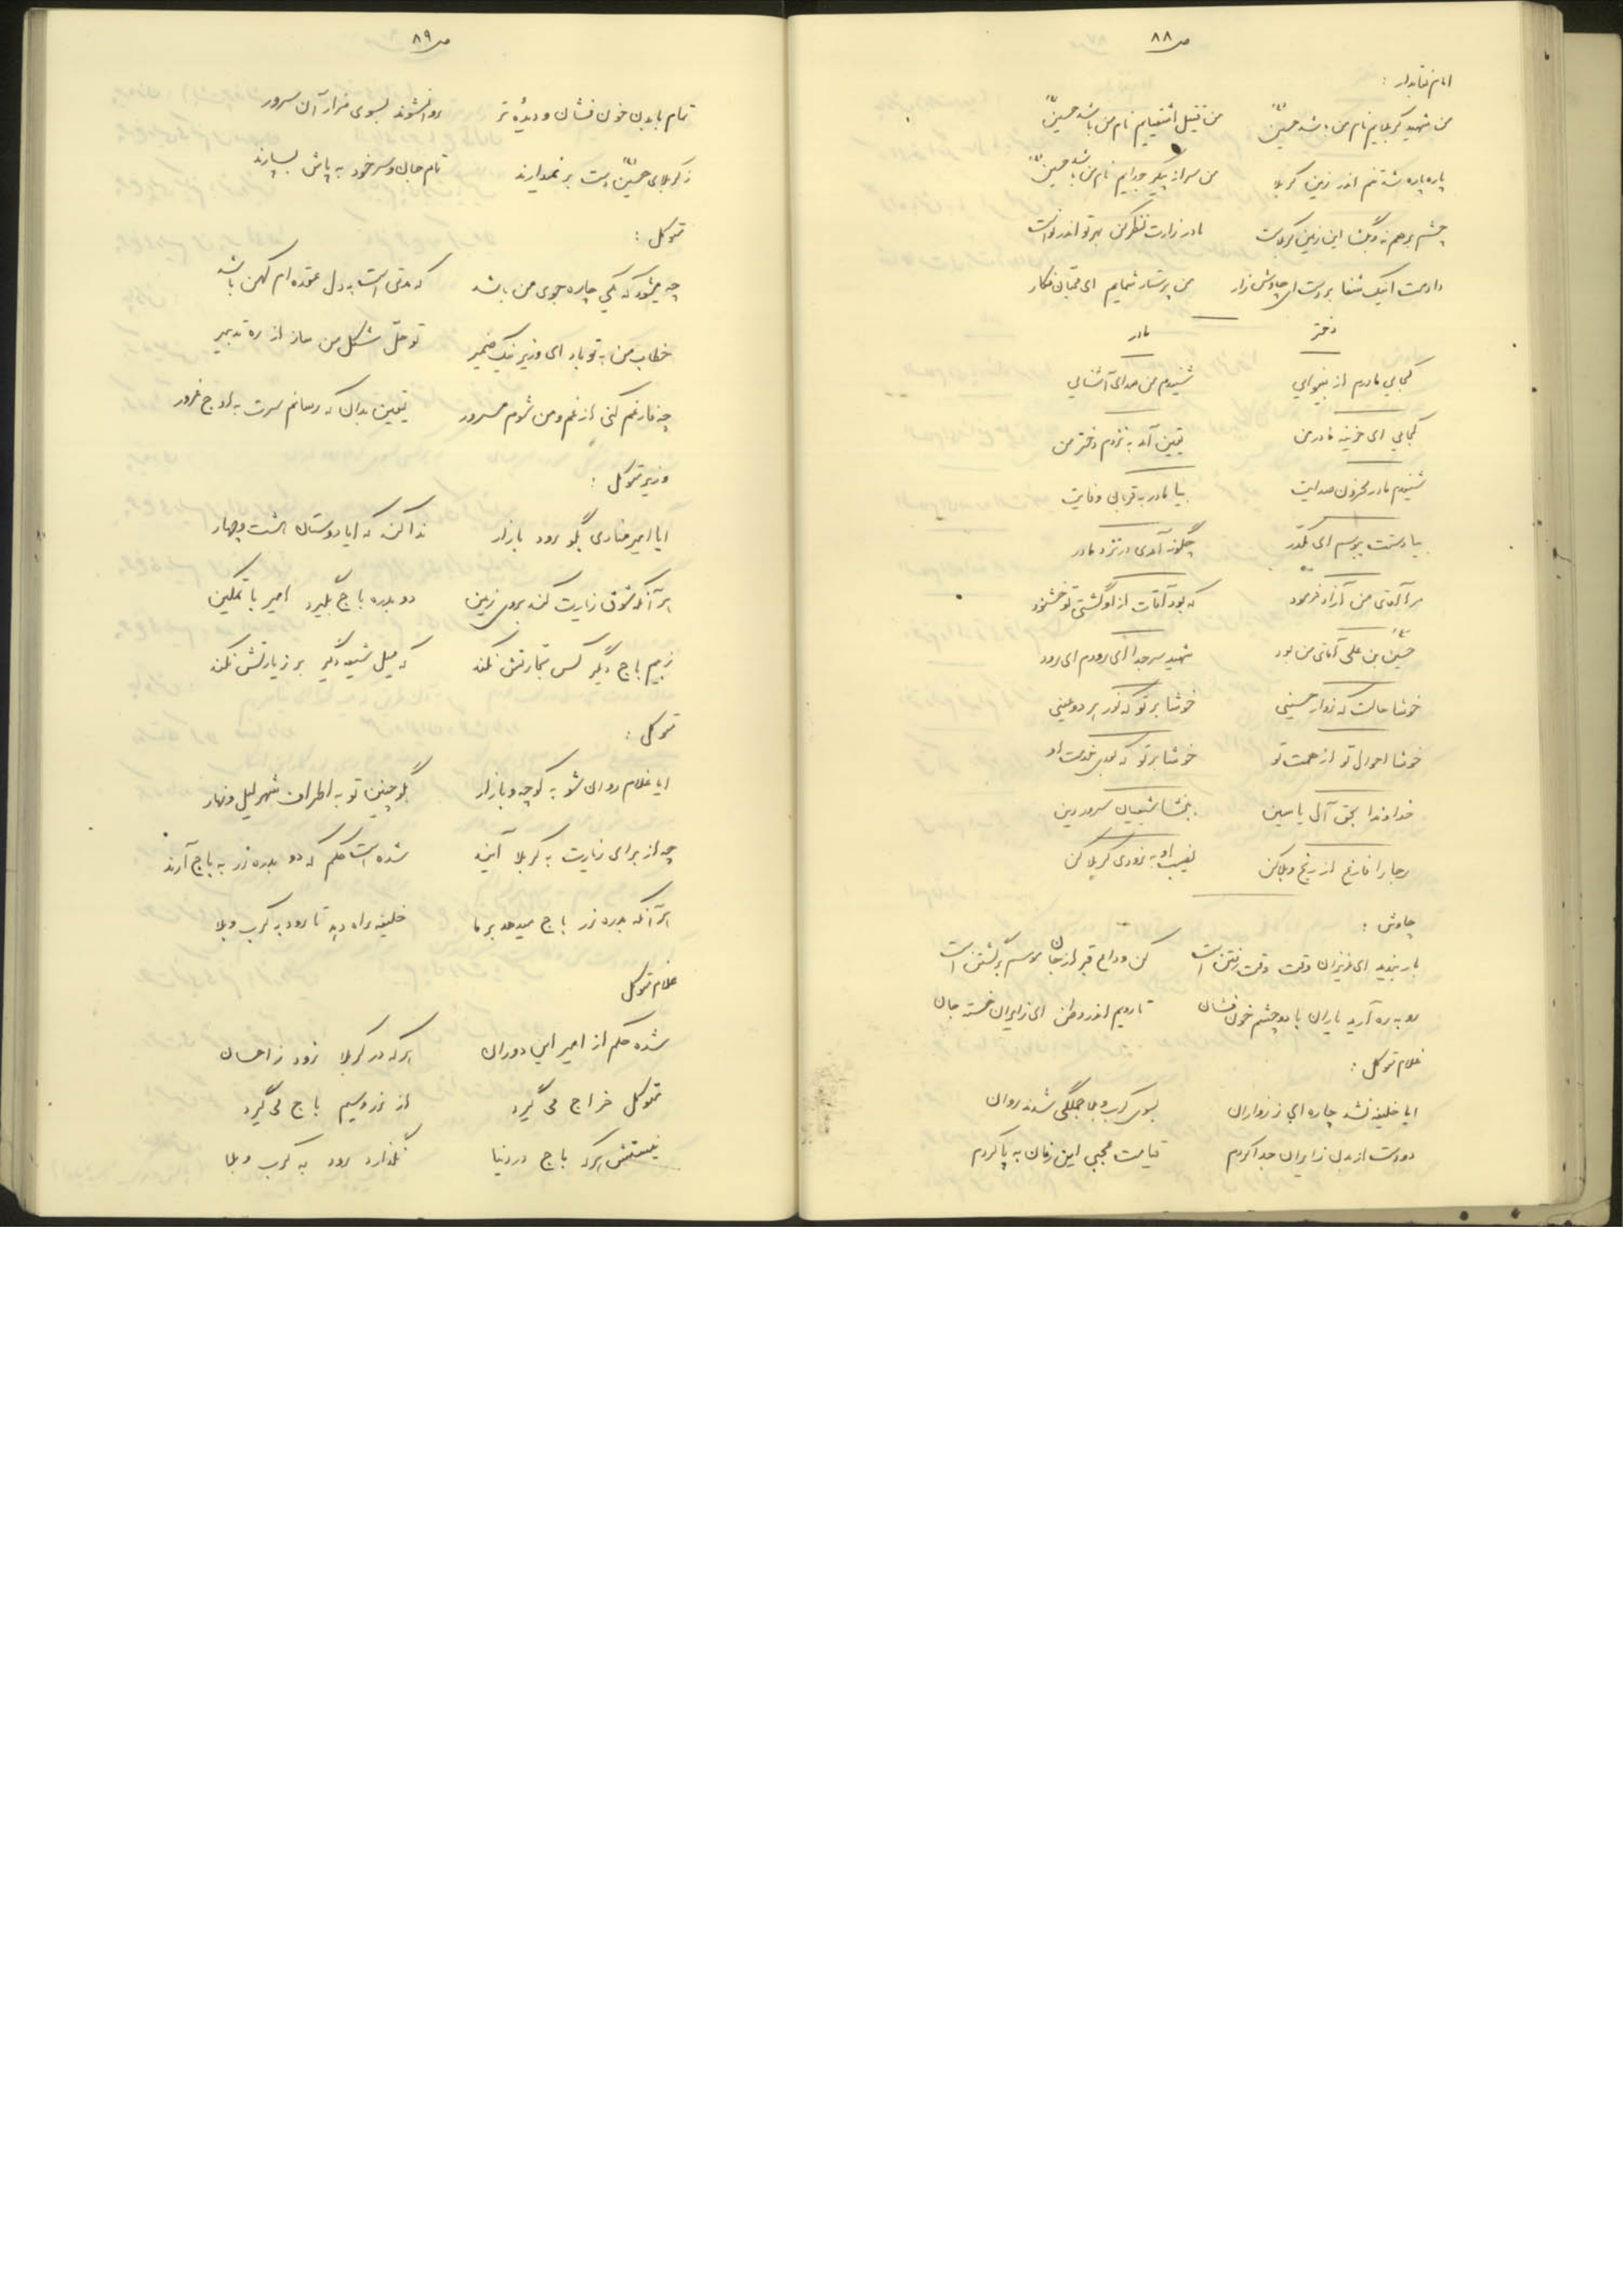 ص ۸۸
امام تابدار :
من شهید کربلایم نام من باشد حسین ع من قتیل اشقیایم نام من باشد حسین ع
پاره پاره شد تنم اندر زمین کربلا من سر از پیکر جدایم نام من باشد حسین ع
چشم برهم نه و بگشا این زمین کربلاست مادر زارت نظر کن بهر تو اندر نواست
دادمت اینک شفا بردست ای چاوش زار من پرستار شمایم ای محبان فکار
دختر مادر
کجایی مادرم از بینوایی شنیدم من صدای آشنایی
کجایی ای حزینه مادر من یقین آمد به نزدم دختر من
شنیدم مادر محزون صدایت بیا مادر به قربان وفایت
بیا دستت ببوسم ای مکدر چگونه آمدی در نزد مادر
مرا آقای من آزاد فرمود که بود آقات از او گشتی تو خشنود
حسین بن علی ع آقای من بود شهید سر جدا ای رودم ای رود
خوشا حالت که زوار حسینی خوشا بر تو که نور هر دو عینی
خوشا احوال تو از همت تو خوشا بر تو که بودی خدمت او
خداوندا بحق آل یاسین ببخشا شیعیان سرور دین
رجا را فارغ از رنج و بلا کن نصیب او به زودی کربلا کن
چاوش :
بار بندید ای عزیزان وقت وقت رفتن است کن وداع قبر از جان موسم برگشتن است
رو به ره آرید یاران با دو چشم خون فشان تا رویم اندر وطن ای زایران خسته جان
غلام متوکل :
ایا خلیفه نشد چاره ای ز زواران بسوی کرب و بلا جملگی شدند روان
دو دست از بدن زایران جدا کردم قیامت عجبی این زمان به پا کردم
ص ۸۹
تمام با بدن خون فشان و دیدهٔ تر روانشوند بسوی مزار آن سرور
ز کربلای حسین ع دست بر نمیدارند تمام جان و سر خود به پاش بسپارند
متوکل :
چه میشود که یکی چاره جوی من باشد که مدتی است به دل عقده ام کهن باشد
خطاب من به تو باد ای وزیر نیک ضمیر تو حل مشکل من ساز از ره تدبیر
چه فارغم کنی از غم و من شوم مسرور یقین بدان که رسانم سرت به اوج غرور
وزیر متوکل :
ایا امیر منادی بگو رود بازار ندا کند که ایا دوستان هشت و چهار
هر آنکه شوق زیارت کند بروی زمین دو بدره باج بگیرد امیر با تمکین
ز بیم باج دگر کس تجارتش نکند که میل شیعه دگر بر زیارتش نکند
متوکل :
ایا غلام روان شو به کوچه و بازار بگو چنین تو به اطراف شهر لیل و نهار
چه از برای زیارت به کربلا آیند شده است حکم که دو بدره زر به باج آرند
هر آنکه بدره زر باج میدهد بر ما خلیفه راه دهد تا رود به کرب و بلا
غلام متوکل
شده حکم از امیر این دوران هر که در کربلا رود ز احسان
متوکل خراج می گیرد از زر و سیم باج می گیرد
نیستش هرکه باج در دنیا نگذارد رود به کرب و بلا